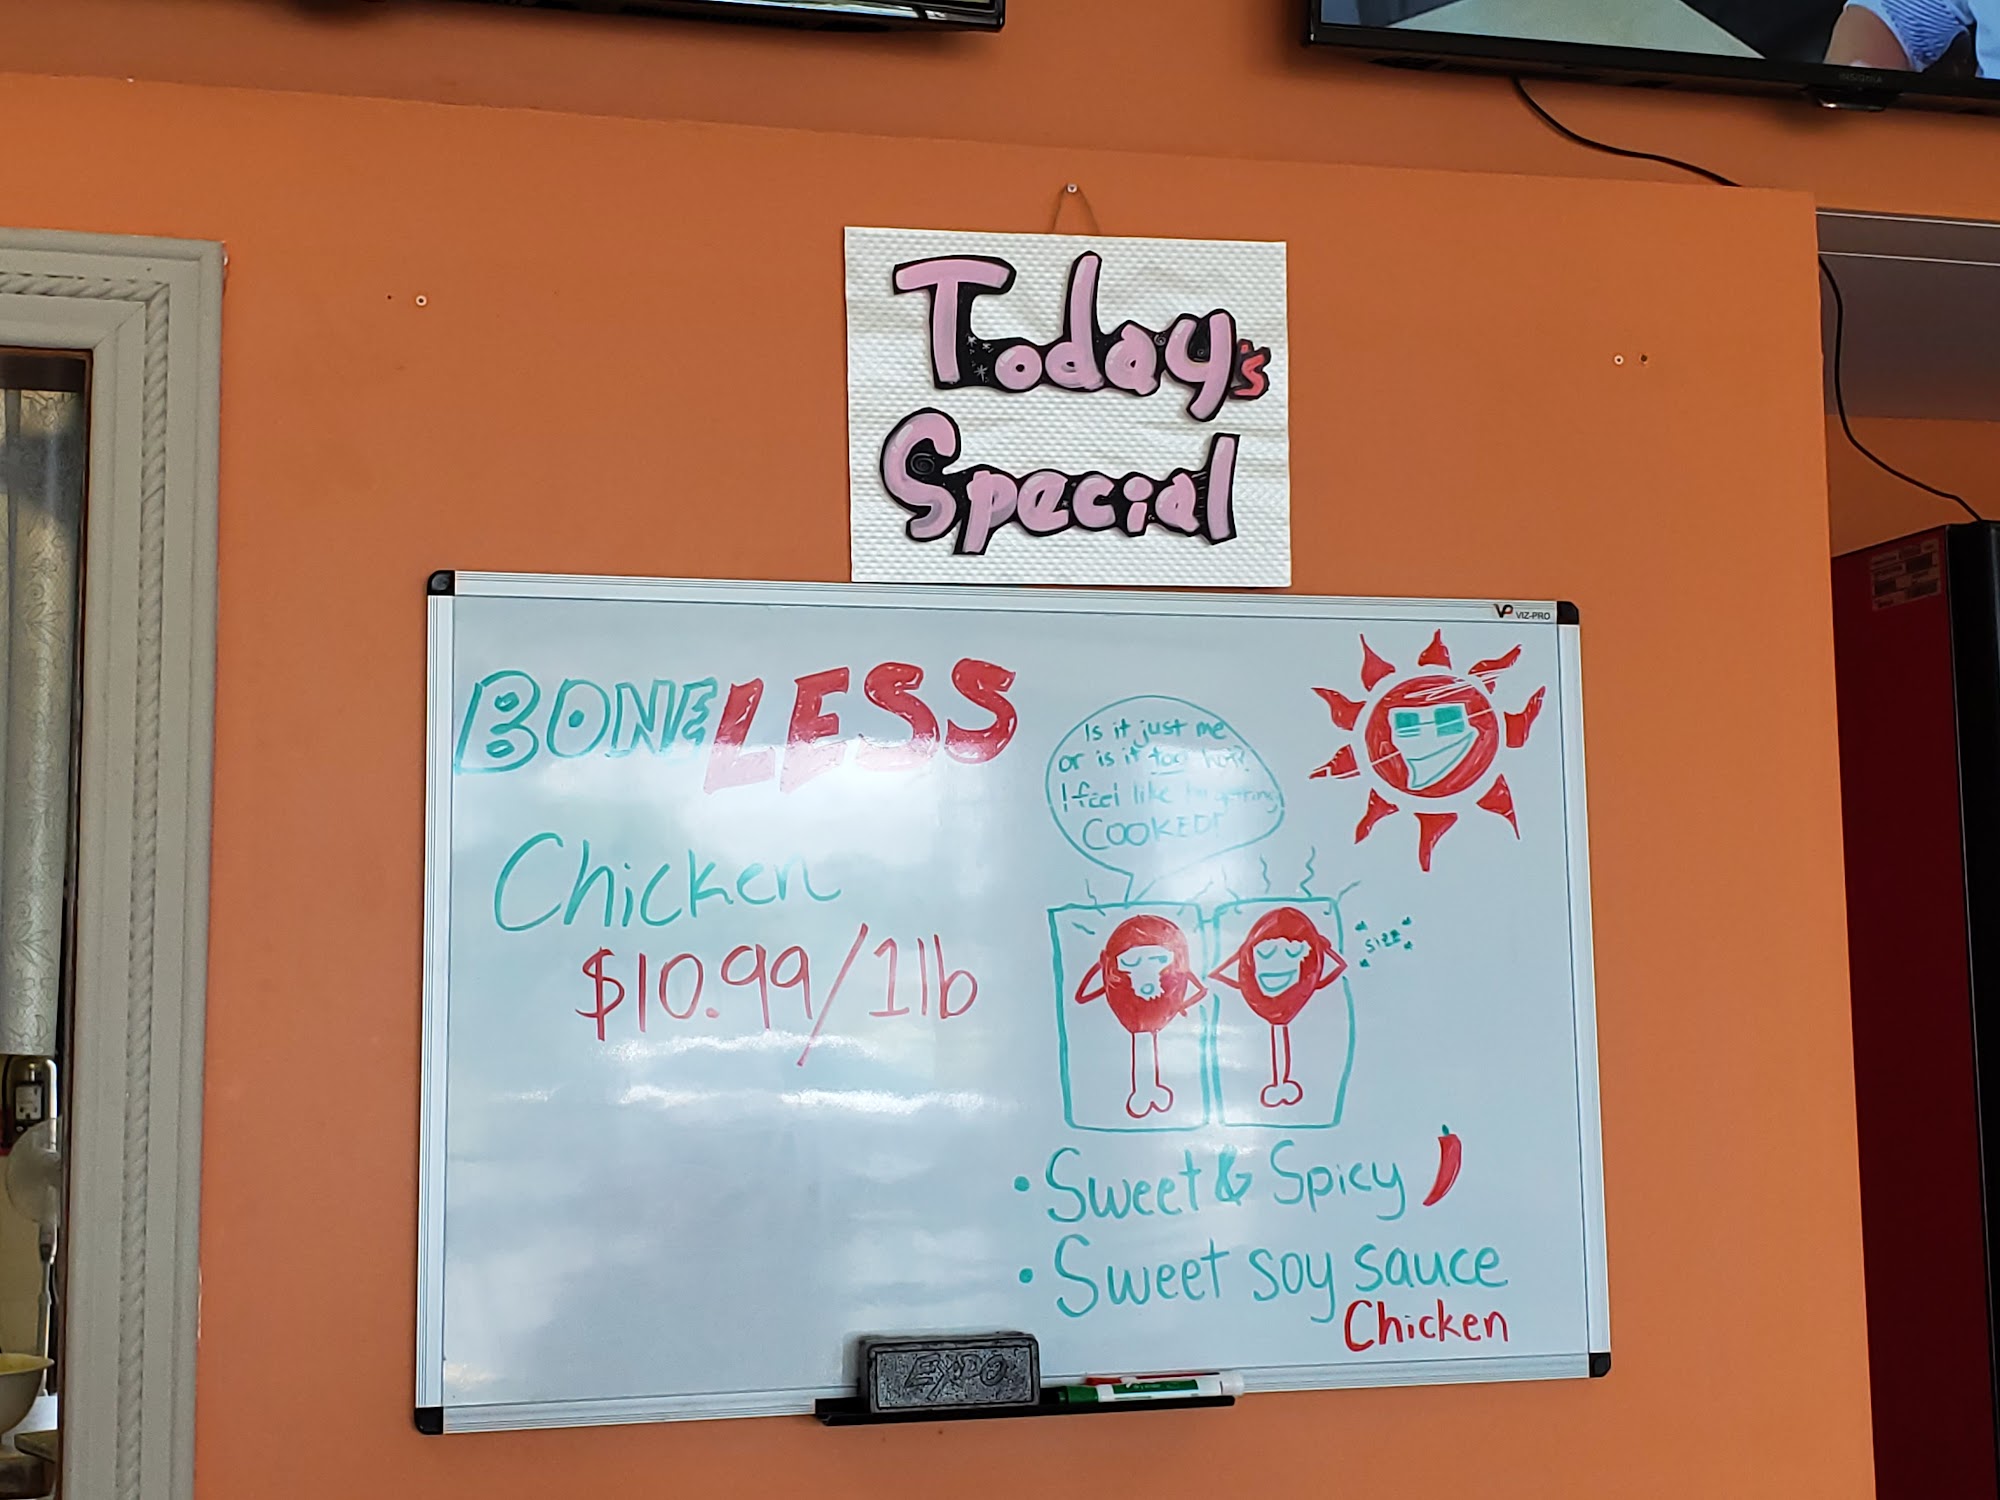 Today's
Special
VP VIZ-PRO
BONELESS
Chicken
$10.99/1lb
Is it just me
or is it too hot?
I feel like I'm getting
COOKED!
SIZE
• Sweet & Spicy
• Sweet soy sauce
Chicken
EXPO